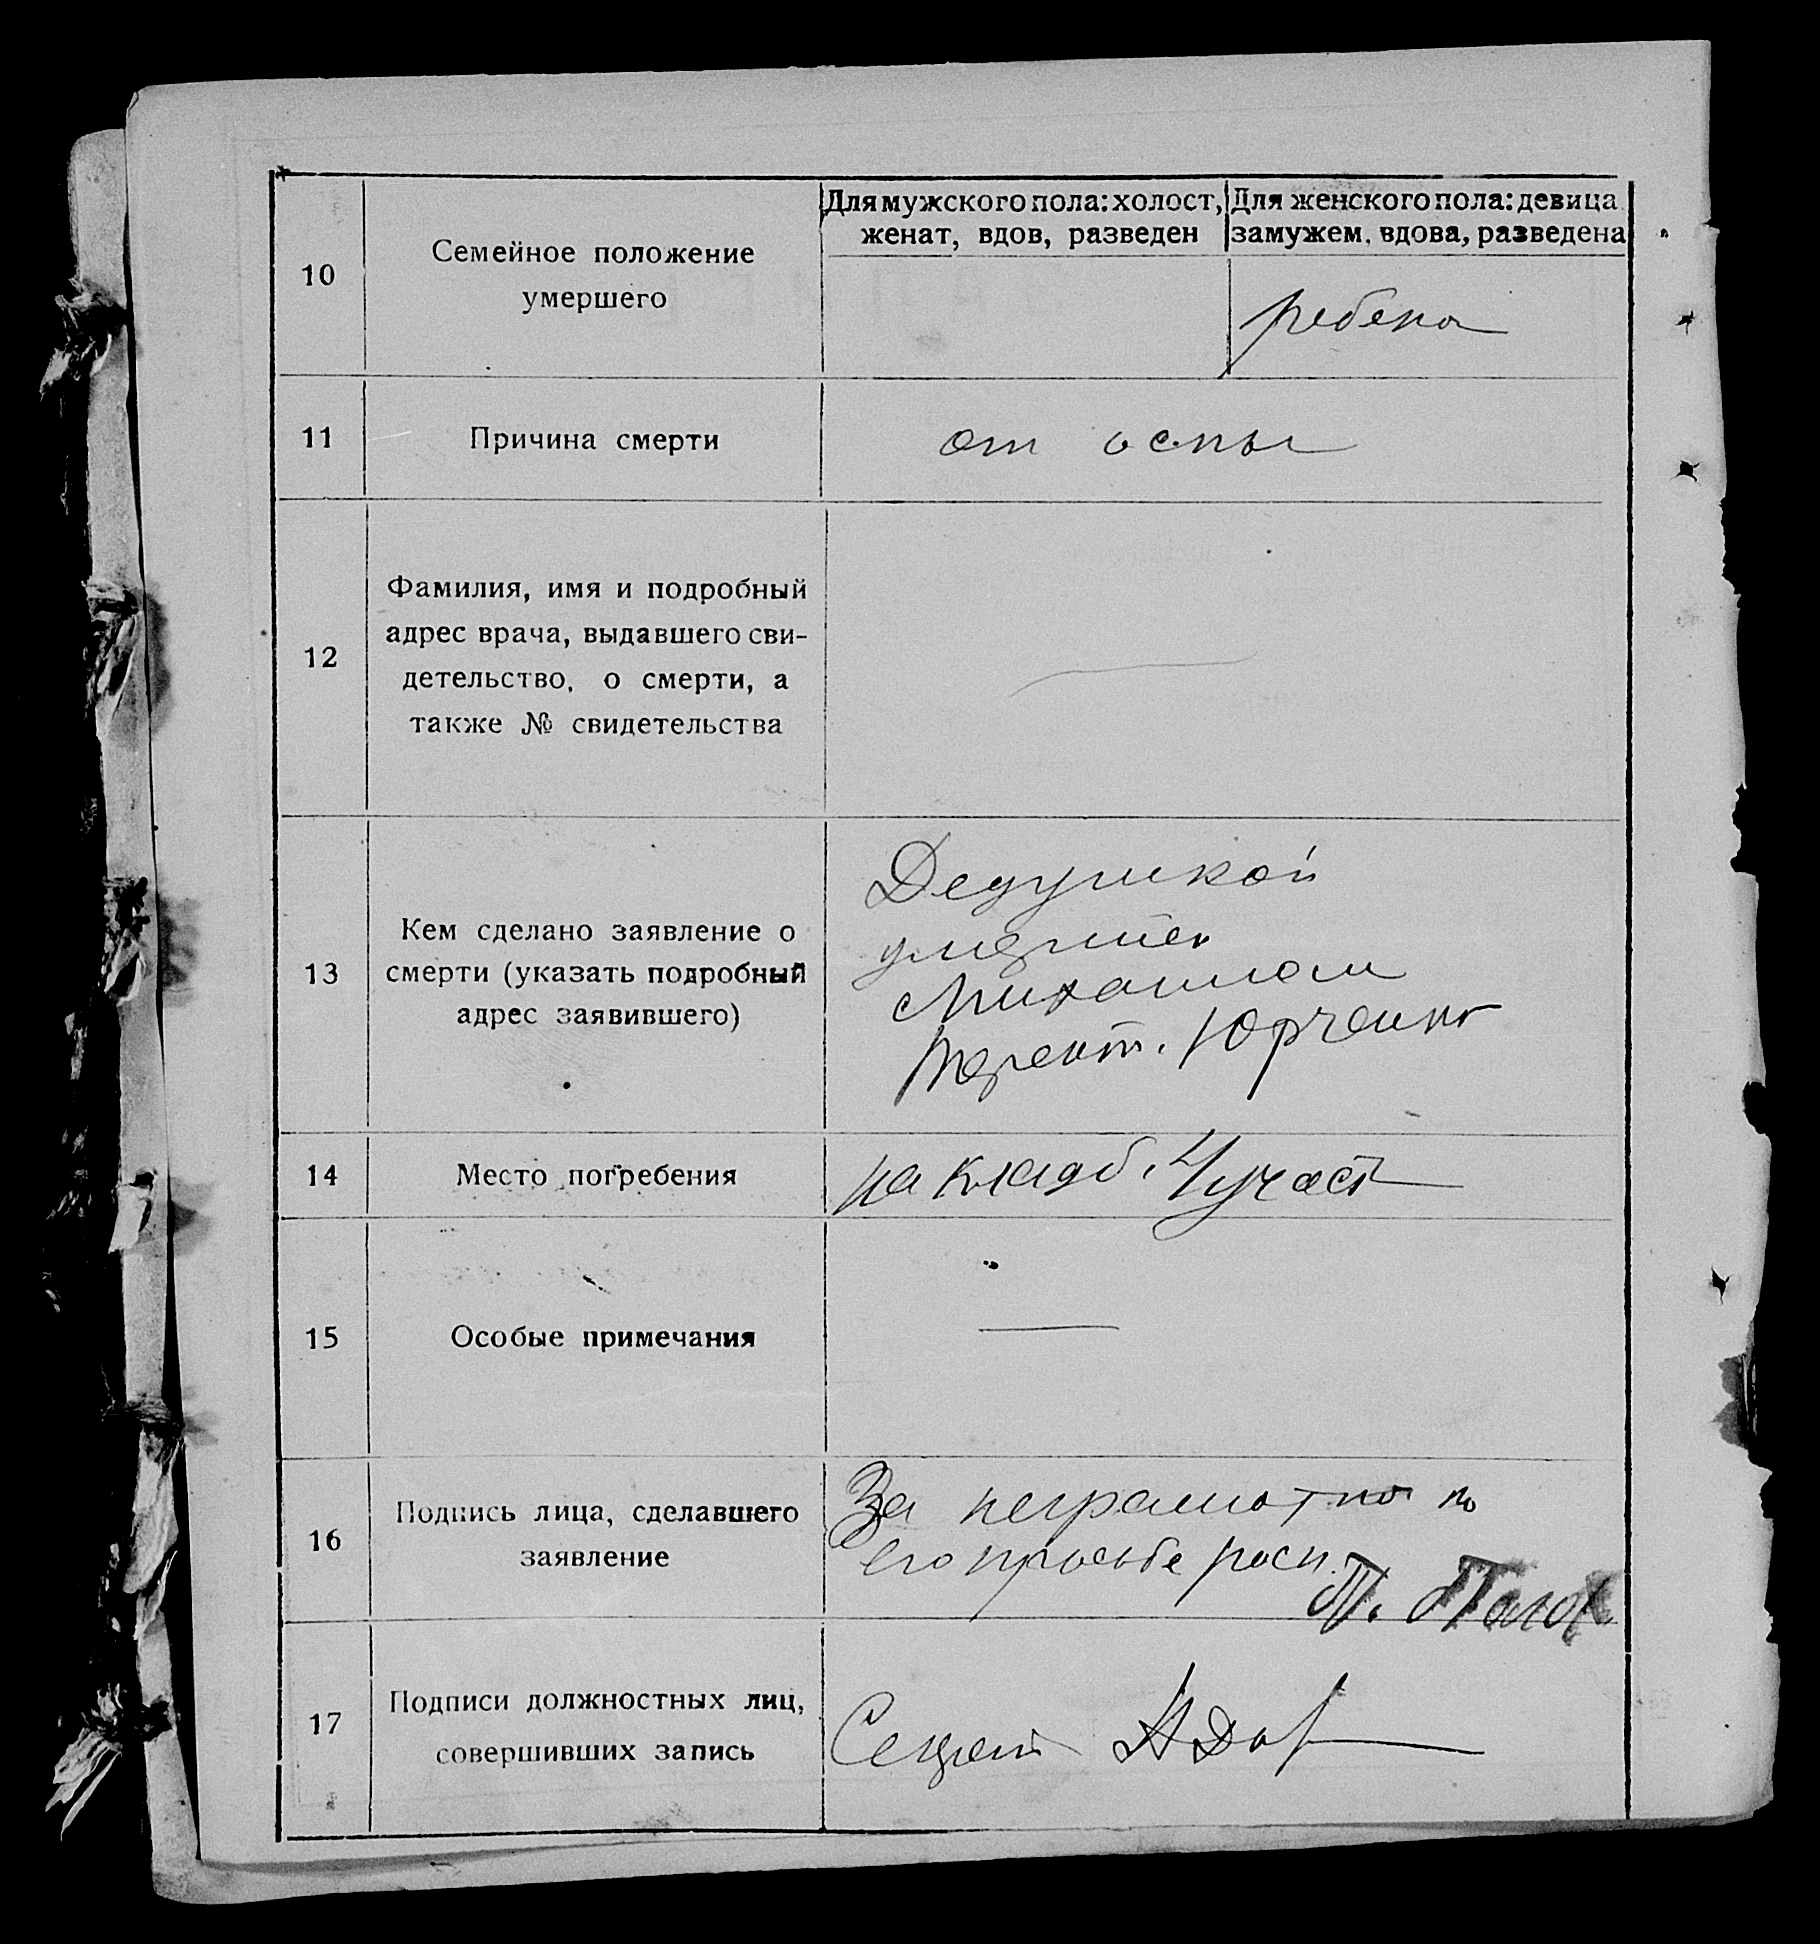 Для мужского пола: холост, женат, вдов, разведен
Для женского пола: девица замужем, вдова, разведена
10
Семейное положение
умершего
ребено
11
Причина смерти
от оспы
12
Фамилия, имя и подробный
адрес врача, выдавшего сви-
детельство, о смерти, а
также № свидетельства
13
Кем сделано заявление о
смерти (указать подробный
адрес заявившего)
Дедушкой
умершей
Михаилом
Терент. Юрченко
14
Место погребения
на кладб. 4 участ
15
Особые примечания
16
Подпись лица, сделавшего
заявление
За неграмотно по
его просьбе расп.
П.
17
Подписи должностных лиц,
совершивших запись
Секрет